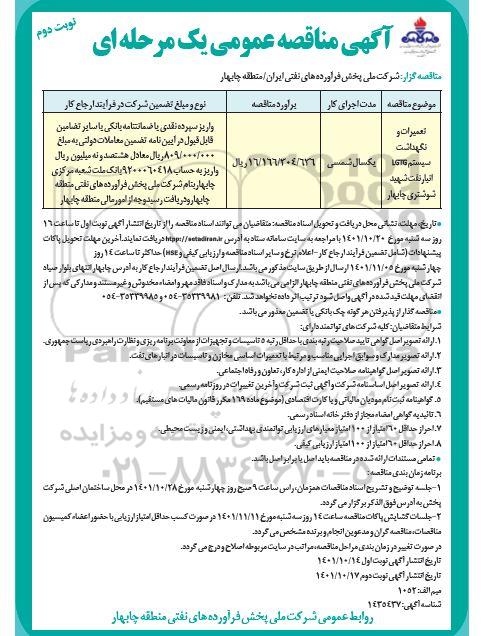 نوبت دوم
آگهی مناقصه عمومی یک مرحله ای
مناقصه گزار: شرکت ملی پخش فرآورده های نفتی ایران/منطقه چابهار
موضوع مناقصه
مدت اجرای کار
برآورد مناقصه
نوع و مبلغ تضمین شرکت در فرآیند ارجاع کار
تعمیرات و
نگهداشت
سیستم LGTG
انبار نفت شهید
شوشتری چابهار
یکسال شمسی
۱۶/۱۶۶/۲۰۴/۶۲۶ ریال
واریز سپرده نقدی یا ضمانتنامه بانکی یا سایر تضامین
قابل قبول در آیین نامه تضمین معاملات دولتی به مبلغ
۸۰۹/۰۰۰/۰۰۰ ریال معادل هشتصد و نه میلیون ریال
واریز به حساب ۹۲۰۰۰۶۰۴۱۸ بانک ملت شعبه مرکزی
چابهار بنام شرکت ملی پخش فرآورده های نفتی منطقه
چابهار و دریافت رسید وجه از امور مالی منطقه چابهار
* تاریخ، مهلت، نشانی محل دریافت و تحویل اسناد مناقصه: متقاضیان می توانند اسناد مناقصه را از تاریخ انتشار آگهی نوبت اول تا ساعت ۱۶
روز سه شنبه مورخ ۱۴۰۱/۱۰/۲۰ با مراجعه به سایت سامانه ستاد به آدرس https://setadiran.ir دریافت نمایند. آخرین مهلت تحویل پاکات
پیشنهادات (شامل تضمین فرآیند ارجاع کار-اعلام نرخ و سایر اسناد مناقصه و ارزیابی کیفی و HSE) حداکثر تا ساعت ۱۴ روز
چهار شنبه مورخ ۱۴۰۱/۱۱/۰۵ ارسال از طریق سایت مذکور می باشد. ارسال اصل تضمین فرآیند ارجاع کار به آدرس چابهار انتهای بلوار صیاد
شرکت ملی پخش فرآورده های نفتی منطقه چابهار الزامی می باشد. به مدارک و اسناد فاقد مهر و امضاء مخدوش و غیر مستند و مدارکی که پس از
انقضای مهلت قید شده در آگهی واصل شود ترتیب اثر داده نخواهد شد. تلفن: ۳۵۳۳۹۹۸۱-۰۵۴ و ۳۵۳۳۹۹۸۵-۰۵۴
* مناقصه گذار از پذیرفتن هر گونه چک بانکی یا تضمین معذور می باشد.
شرایط متقاضیان: کلیه شرکت های توانمند دارای:
۱. ارائه تصویر اصل گواهی تایید صلاحیت رتبه بندی با حداقل رتبه ۵ تاسیسات و تجهیزات از معاونت برنامه ریزی و نظارت راهبردی ریاست جمهوری.
۲. ارائه تصویر مدارک و سوابق اجرایی مناسب و مرتبط با تعمیرات اساسی مخازن و تاسیسات در انبارهای نفت.
۳. ارائه تصویر اصل گواهینامه صلاحیت ایمنی از اداره کار، تعاون و رفاه اجتماعی.
۴. ارائه تصویر اصل اساسنامه شرکت و آگهی ثبت شرکت و آخرین تغییرات در روزنامه رسمی.
۵. گواهینامه ثبت نام مودیان مالیاتی و یا کارت اقتصادی (موضوع ماده ۱۶۹ مکرر قانون مالیات های مستقیم).
۶. تائیدیه گواهی امضاء مجاز از دفتر خانه اسناد رسمی.
۷. احراز حداقل ۶۰ امتیاز از ۱۰۰ امتیاز معیارهای ارزیابی توانمندی بهداشتی، ایمنی و زیست محیطی.
۸. احراز حداقل ۶۰ امتیاز از ۱۰۰ امتیاز ارزیابی کیفی.
* تمامی مستندات ارائه شده در مناقصه باید اصل یا برابر اصل باشد.
برنامه زمان بندی مناقصه:
۱-جلسه توضیح و تشریح اسناد مناقصات همزمان، راس ساعت ۹ صبح روز چهار شنبه مورخ ۱۴۰۱/۱۰/۲۸ در محل ساختمان اصلی شرکت
پخش به آدرس فوق الذکر برگزار می گردد.
۲-جلسات گشایش پاکات مناقصه ساعت ۱۴ روز سه شنبه مورخ ۱۴۰۱/۱۱/۱۱ در صورت کسب حداقل امتیاز ارزیابی با حضور اعضاء کمیسیون
مناقصات، مناقصه گران و مدعوین انجام و برنده مشخص می گردد.
در صورت تغییر در زمان بندی مراحل مناقصه، مراتب در سایت مربوطه اصلاح و درج می گردد.
تاریخ انتشار آگهی نوبت اول ۱۴۰۱/۱۰/۱۴
تاریخ انتشار آگهی نوبت دوم ۱۴۰۱/۱۰/۱۷
میم الف: ۱۰۵۲
شناسه آگهی: ۱۴۳۵۴۳۷
روابط عمومی شرکت ملی پخش فرآورده های نفتی منطقه چابهار